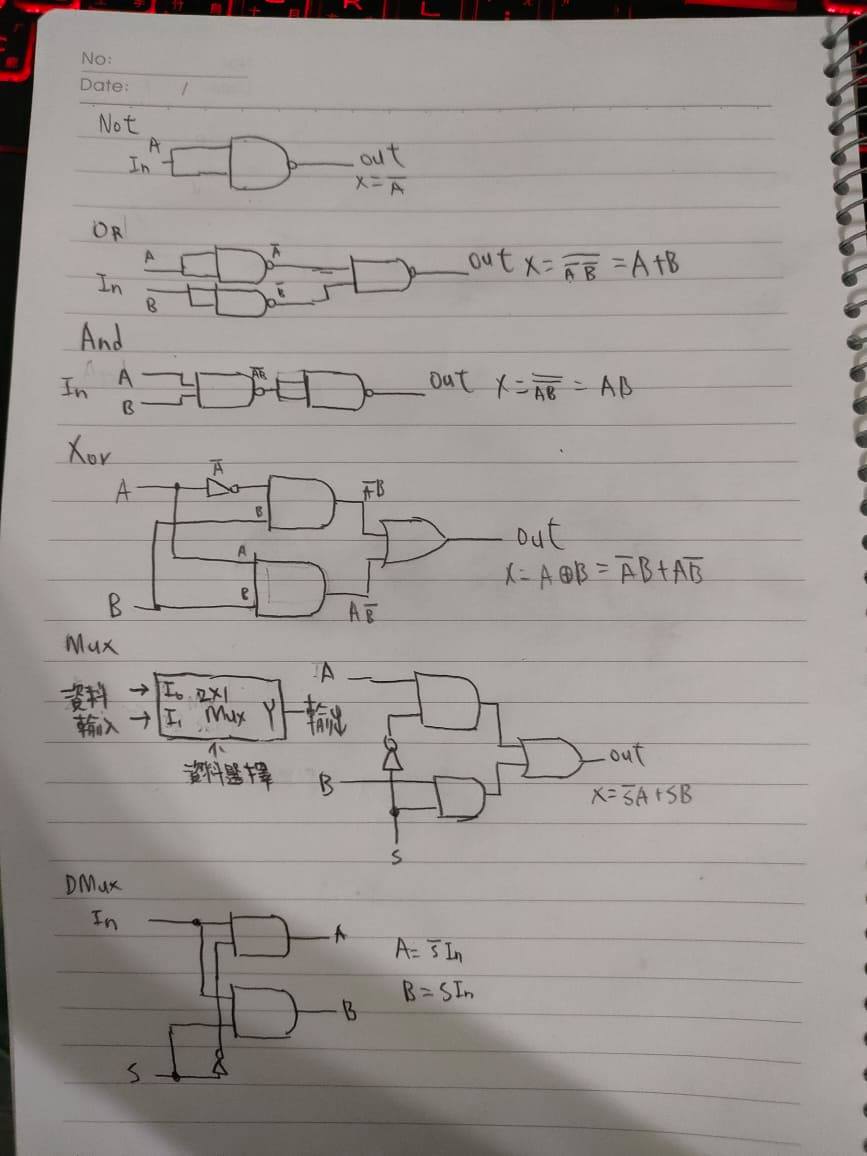 No:
Date: /
Not
A
In
out
X = A̅
OR
A
A̅
In
B
B̅
out X = \overline{A̅ B̅} = A+B
And
In
A
B
\overline{AB}
out X = \overline{\overline{AB}} = AB
Xor
A
A̅
B
A̅B
A
B
B
AB̅
out
X = A⊕B = A̅B + AB̅
Mux
資料 → I₀ 2X1
輸入 → I₁ Mux Y 輸出
資料選擇
A
B
S
out
X = S̅A + SB
DMux
In
A
B
S
A = S̅ In
B = S In